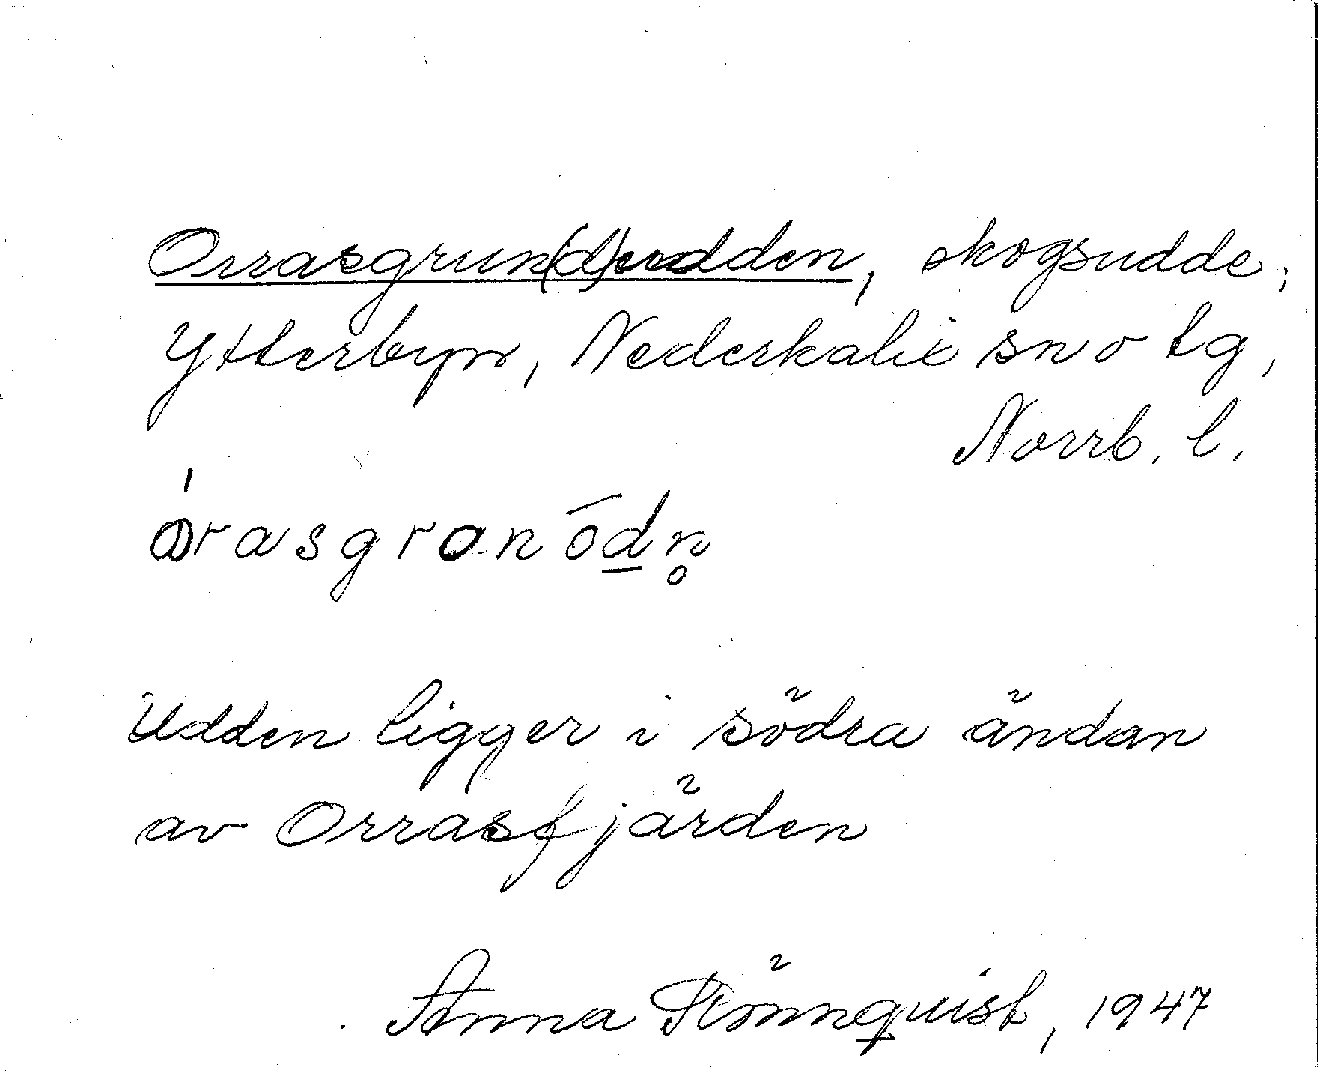 Orrasgrun(d)udden, skogsudde,
Ytterbyn, Nederkalix sn o tg,
Norrb. l.
órasgranódn̥
Udden ligger i södra ändan
av Orrasfjärden
Anna Rönnquist, 1947